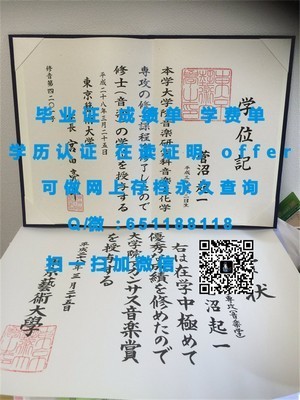 学位記
菅沼起一
本学大学院音楽研究科音楽文化学
専攻の修士課程を修了したので
修士（音楽）の学位を授与する
平成二十八年三月二十五日
東京藝術大学
長 宮田亮平
修音第四二
毕业证 成绩单 学费单
学历认证 在读证明 offer
可做网上存档永久查询
Q/微:651188118
扫一扫加微信
状
専攻（音楽学）
沼起一
右は在学中極めて
優秀な成績を修めたので
大学院アカンサス音楽賞
を授与する
三月二十五日
東京藝術大學